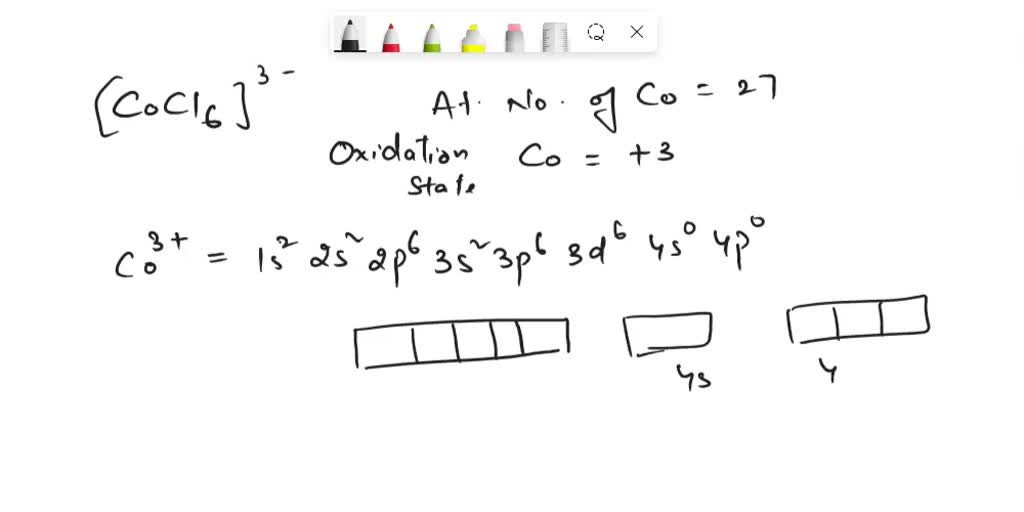 [CoCl₆]³⁻ At. No. of Co = 27
Oxidation State Co = +3
Co³⁺ = 1s² 2s² 2p⁶ 3s² 3p⁶ 3d⁶ 4s⁰ 4p⁰
4s 4